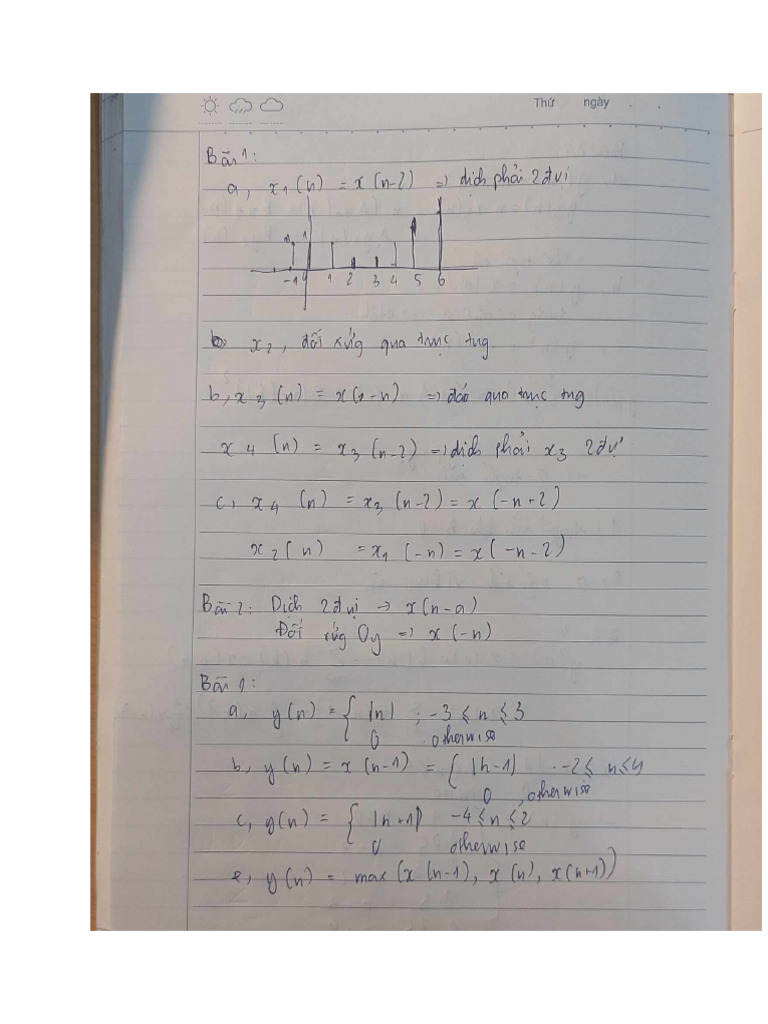 Thứ ngày
Bài 1:
a, x₁(n) = x(n-2) => dịch phải 2 đvị
1 1
-1 1 2 3 4 5 6
b, x₂, đối xứng qua trục tung
b, x₃(n) = x(-n) => đảo qua trục tung
x₄(n) = x₃(n-2) => dịch phải x₃ 2 đvị
c, x₄(n) = x₃(n-2) = x(-n+2)
x₂(n) = x₁(-n) = x(-n-2)
Bài 2: Dịch 2 đvị -> x(n-a)
Đối xứng Oy => x(-n)
Bài 1:
a, y(n) = { |n| ; -3 ≤ n ≤ 3
0 otherwise
b, y(n) = x(n-1) = { |n-1| . -2 ≤ n ≤ 4
0 , otherwise
c, y(n) = { |n+1| -4 ≤ n ≤ 2
0 otherwise
e, y(n) = max(x(n-1), x(n), x(n+1))